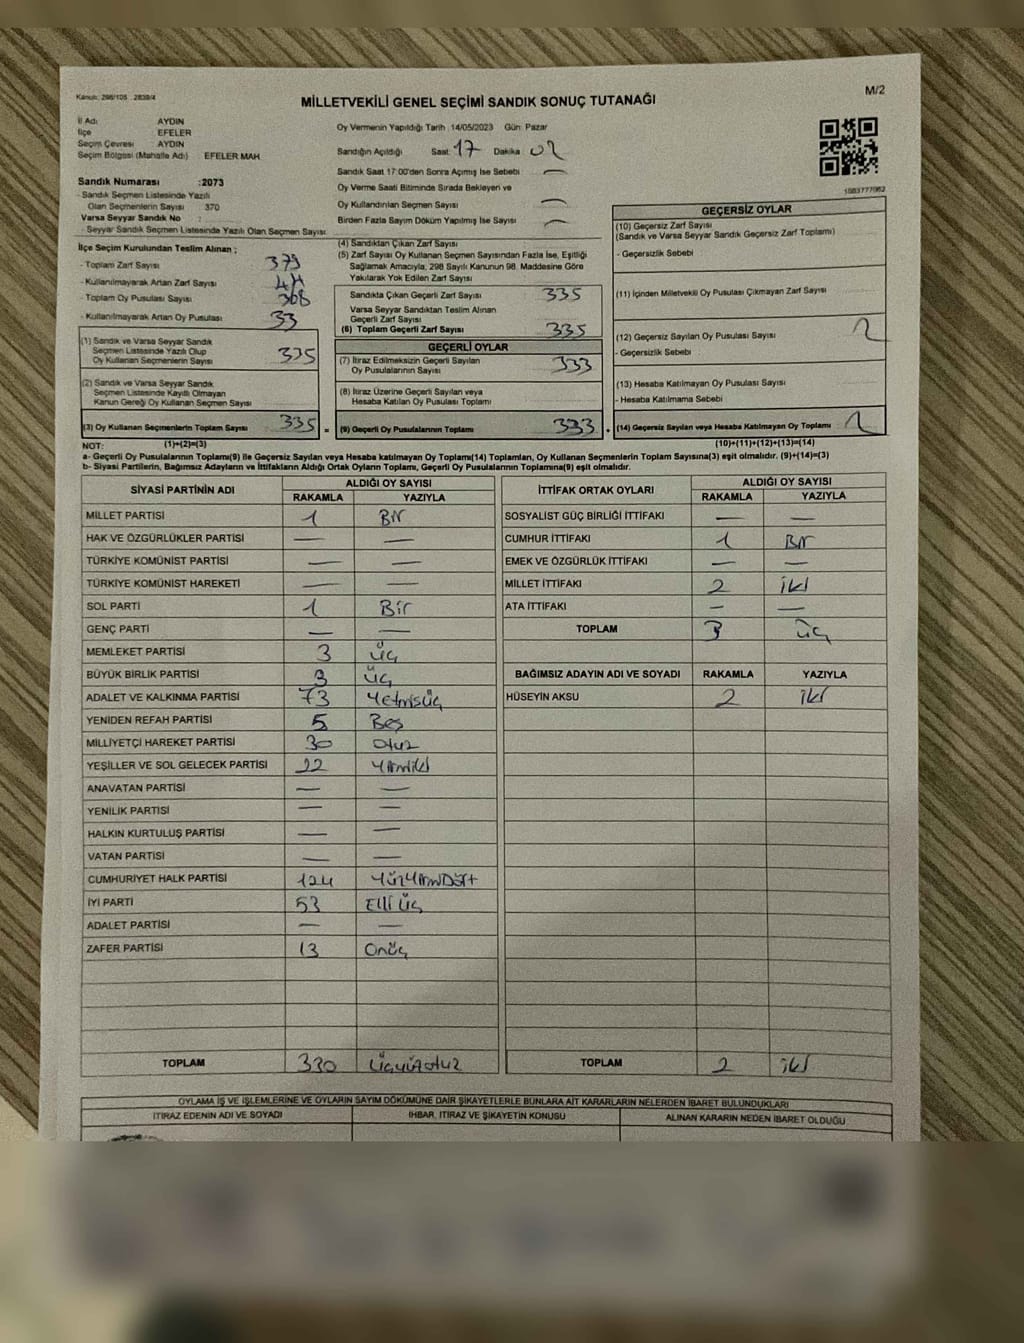 Kanun: 298/105 - 2839/4
MİLLETVEKİLİ GENEL SEÇİMİ SANDIK SONUÇ TUTANAĞI
M/2
İl Adı AYDIN
İlçe EFELER
Seçim Çevresi AYDIN
Seçim Bölgesi (Mahalle Adı) EFELER MAH.
Sandık Numarası :2073
- Sandık Seçmen Listesinde Yazılı
Olan Seçmenlerin Sayısı 370
Varsa Seyyar Sandık No :
- Seyyar Sandık Seçmen Listesinde Yazılı Olan Seçmen Sayısı:
İlçe Seçim Kurulundan Teslim Alınan ;
- Toplam Zarf Sayısı 379
- Kullanılmayarak Artan Zarf Sayısı 44
- Toplam Oy Pusulası Sayısı 368
- Kullanılmayarak Artan Oy Pusulası 33
(1) Sandık ve Varsa Seyyar Sandık
Seçmen Listesinde Yazılı Olup
Oy Kullanan Seçmenlerin Sayısı 335
(2) Sandık ve Varsa Seyyar Sandık
Seçmen Listesinde Kayıtlı Olmayan
Kanun Gereği Oy Kullanan Seçmen Sayısı
(3) Oy Kullanan Seçmenlerin Toplam Sayısı 335 =
Oy Vermenin Yapıldığı Tarih :14/05/2023 Gün: Pazar
Sandığın Açıldığı Saat: 17 Dakika: 02
Sandık Saat 17:00'den Sonra Açımış İse Sebebi —
Oy Verme Saati Bitiminde Sırada Bekleyen ve
Oy Kullandırılan Seçmen Sayısı —
Birden Fazla Sayım Döküm Yapılmış İse Sayısı —
(4) Sandıktan Çıkan Zarf Sayısı
(5) Zarf Sayısı Oy Kullanan Seçmen Sayısından Fazla İse, Eşitliği
Sağlamak Amacıyla, 298 Sayılı Kanunun 98. Maddesine Göre
Yakılarak Yok Edilen Zarf Sayısı
Sandıkta Çıkan Geçerli Zarf Sayısı 335
Varsa Seyyar Sandıktan Teslim Alınan
Geçerli Zarf Sayısı
(6) Toplam Geçerli Zarf Sayısı 335
GEÇERLİ OYLAR
(7) İtiraz Edilmeksizin Geçerli Sayılan
Oy Pusulalarının Sayısı 333
(8) İtiraz Üzerine Geçerli Sayılan veya
Hesaba Katılan Oy Pusulası Toplamı
(9) Geçerli Oy Pusulalarının Toplamı 333 +
1083777062
GEÇERSİZ OYLAR
(10) Geçersiz Zarf Sayısı
(Sandık ve Varsa Seyyar Sandık Geçersiz Zarf Toplamı)
- Geçersizlik Sebebi
(11) İçinden Milletvekili Oy Pusulası Çıkmayan Zarf Sayısı
(12) Geçersiz Sayılan Oy Pusulası Sayısı 2
- Geçersizlik Sebebi
(13) Hesaba Katılmayan Oy Pusulası Sayısı
- Hesaba Katılmama Sebebi
(14) Geçersiz Sayılan veya Hesaba Katılmayan Oy Toplamı 2
NOT: (1)+(2)=(3) (10)+(11)+(12)+(13)=(14)
a- Geçerli Oy Pusulalarının Toplamı(9) ile Geçersiz Sayılan veya Hesaba katılmayan Oy Toplamı(14) Toplamları, Oy Kullanan Seçmenlerin Toplam Sayısına(3) eşit olmalıdır. (9)+(14)=(3)
b- Siyasi Partilerin, Bağımsız Adayların ve İttifakların Aldığı Ortak Oyların Toplamı, Geçerli Oy Pusulalarının Toplamına(9) eşit olmalıdır.
SİYASİ PARTİNİN ADI ALDIĞI OY SAYISI
RAKAMLA YAZIYLA
MİLLET PARTİSİ 1 Bir
HAK VE ÖZGÜRLÜKLER PARTİSİ — —
TÜRKİYE KOMÜNİST PARTİSİ — —
TÜRKİYE KOMÜNİST HAREKETİ — —
SOL PARTİ 1 Bir
GENÇ PARTİ — —
MEMLEKET PARTİSİ 3 üç
BÜYÜK BİRLİK PARTİSİ 3 üç
ADALET VE KALKINMA PARTİSİ 73 Yetmişüç
YENİDEN REFAH PARTİSİ 5 Beş
MİLLİYETÇİ HAREKET PARTİSİ 30 Otuz
YEŞİLLER VE SOL GELECEK PARTİSİ 22 Yirmiiki
ANAVATAN PARTİSİ — —
YENİLİK PARTİSİ — —
HALKIN KURTULUŞ PARTİSİ — —
VATAN PARTİSİ — —
CUMHURİYET HALK PARTİSİ 124 YüzYirmiDört
İYİ PARTİ 53 Elli üç
ADALET PARTİSİ — —
ZAFER PARTİSİ 13 Onüç
TOPLAM 330 üçyüzotuz
İTTİFAK ORTAK OYLARI ALDIĞI OY SAYISI
RAKAMLA YAZIYLA
SOSYALİST GÜÇ BİRLİĞİ İTTİFAKI — —
CUMHUR İTTİFAKI 1 Bir
EMEK VE ÖZGÜRLÜK İTTİFAKI — —
MİLLET İTTİFAKI 2 iki
ATA İTTİFAKI — —
TOPLAM 3 üç
BAĞIMSIZ ADAYIN ADI VE SOYADI RAKAMLA YAZIYLA
HÜSEYİN AKSU 2 iki
TOPLAM 2 iki
OYLAMA İŞ VE İŞLEMLERİNE VE OYLARIN SAYIM DÖKÜMÜNE DAİR ŞİKAYETLERLE BUNLARA AİT KARARLARIN NELERDEN İBARET BULUNDUKLARI
İTİRAZ EDENİN ADI VE SOYADI İHBAR, İTİRAZ VE ŞİKAYETİN KONUSU ALINAN KARARIN NEDEN İBARET OLDUĞU